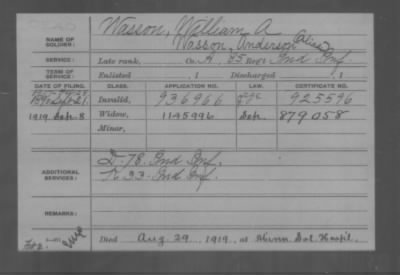 NAME OF SOLDIER: Wasson, William A
Wasson, Anderson (alias)
SERVICE: Late rank, Co. A, 25 Reg't Ind Inf.
TERM OF SERVICE: Enlisted , 1 Discharged , 1
DATE OF FILING. CLASS. APPLICATION NO. LAW. CERTIFICATE NO.
Invalid, 936966 925596
1919 Sep. 8 Widow, 1145996 Sep. 879058
Minor,
ADDITIONAL SERVICES: D. 78. Ind Inf.
K 33. Ind Inf.
REMARKS:
Died Aug 29, 1919, at Minn. Sol. Hospit.